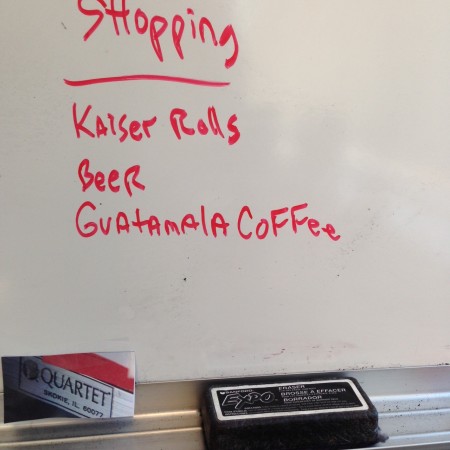 Shopping
Kaiser Rolls
Beer
Guatamala Coffee
QUARTET
SKOKIE, IL. 60077
SANFORD
EXPO
ERASER
BROSSE À EFFACER
BORRADOR